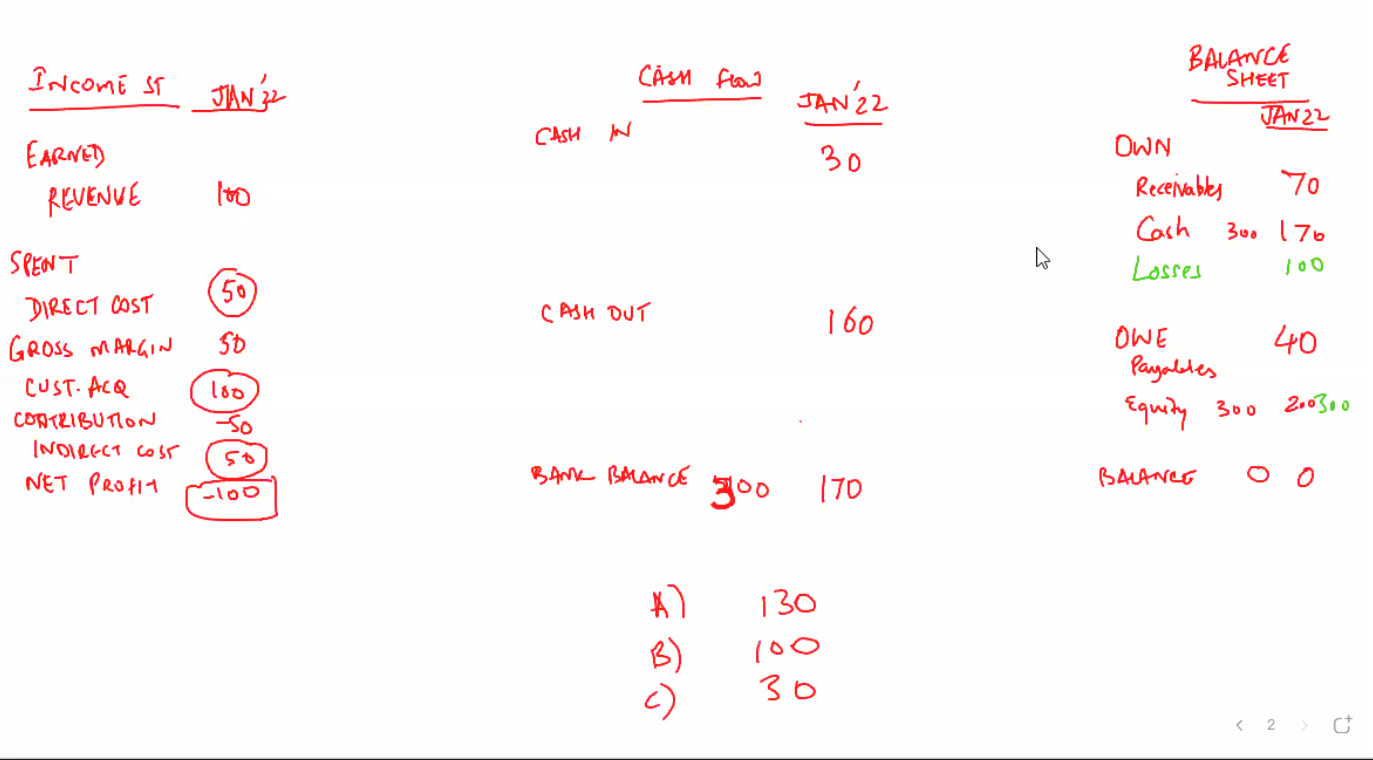 INCOME ST JAN'22
EARNED
REVENUE 100
SPENT
DIRECT COST 50
GROSS MARGIN 50
CUST. ACQ 100
CONTRIBUTION -50
INDIRECT COST 50
NET PROFIT -100
CASH FLOW JAN'22
CASH IN 30
CASH OUT 160
BANK BALANCE 300 170
A) 130
B) 100
C) 30
BALANCE
SHEET
JAN 22
OWN
Receivables 70
Cash 300 170
Losses 100
OWE 40
Payables
Equity 300 200 300
BALANCE 0 0
2